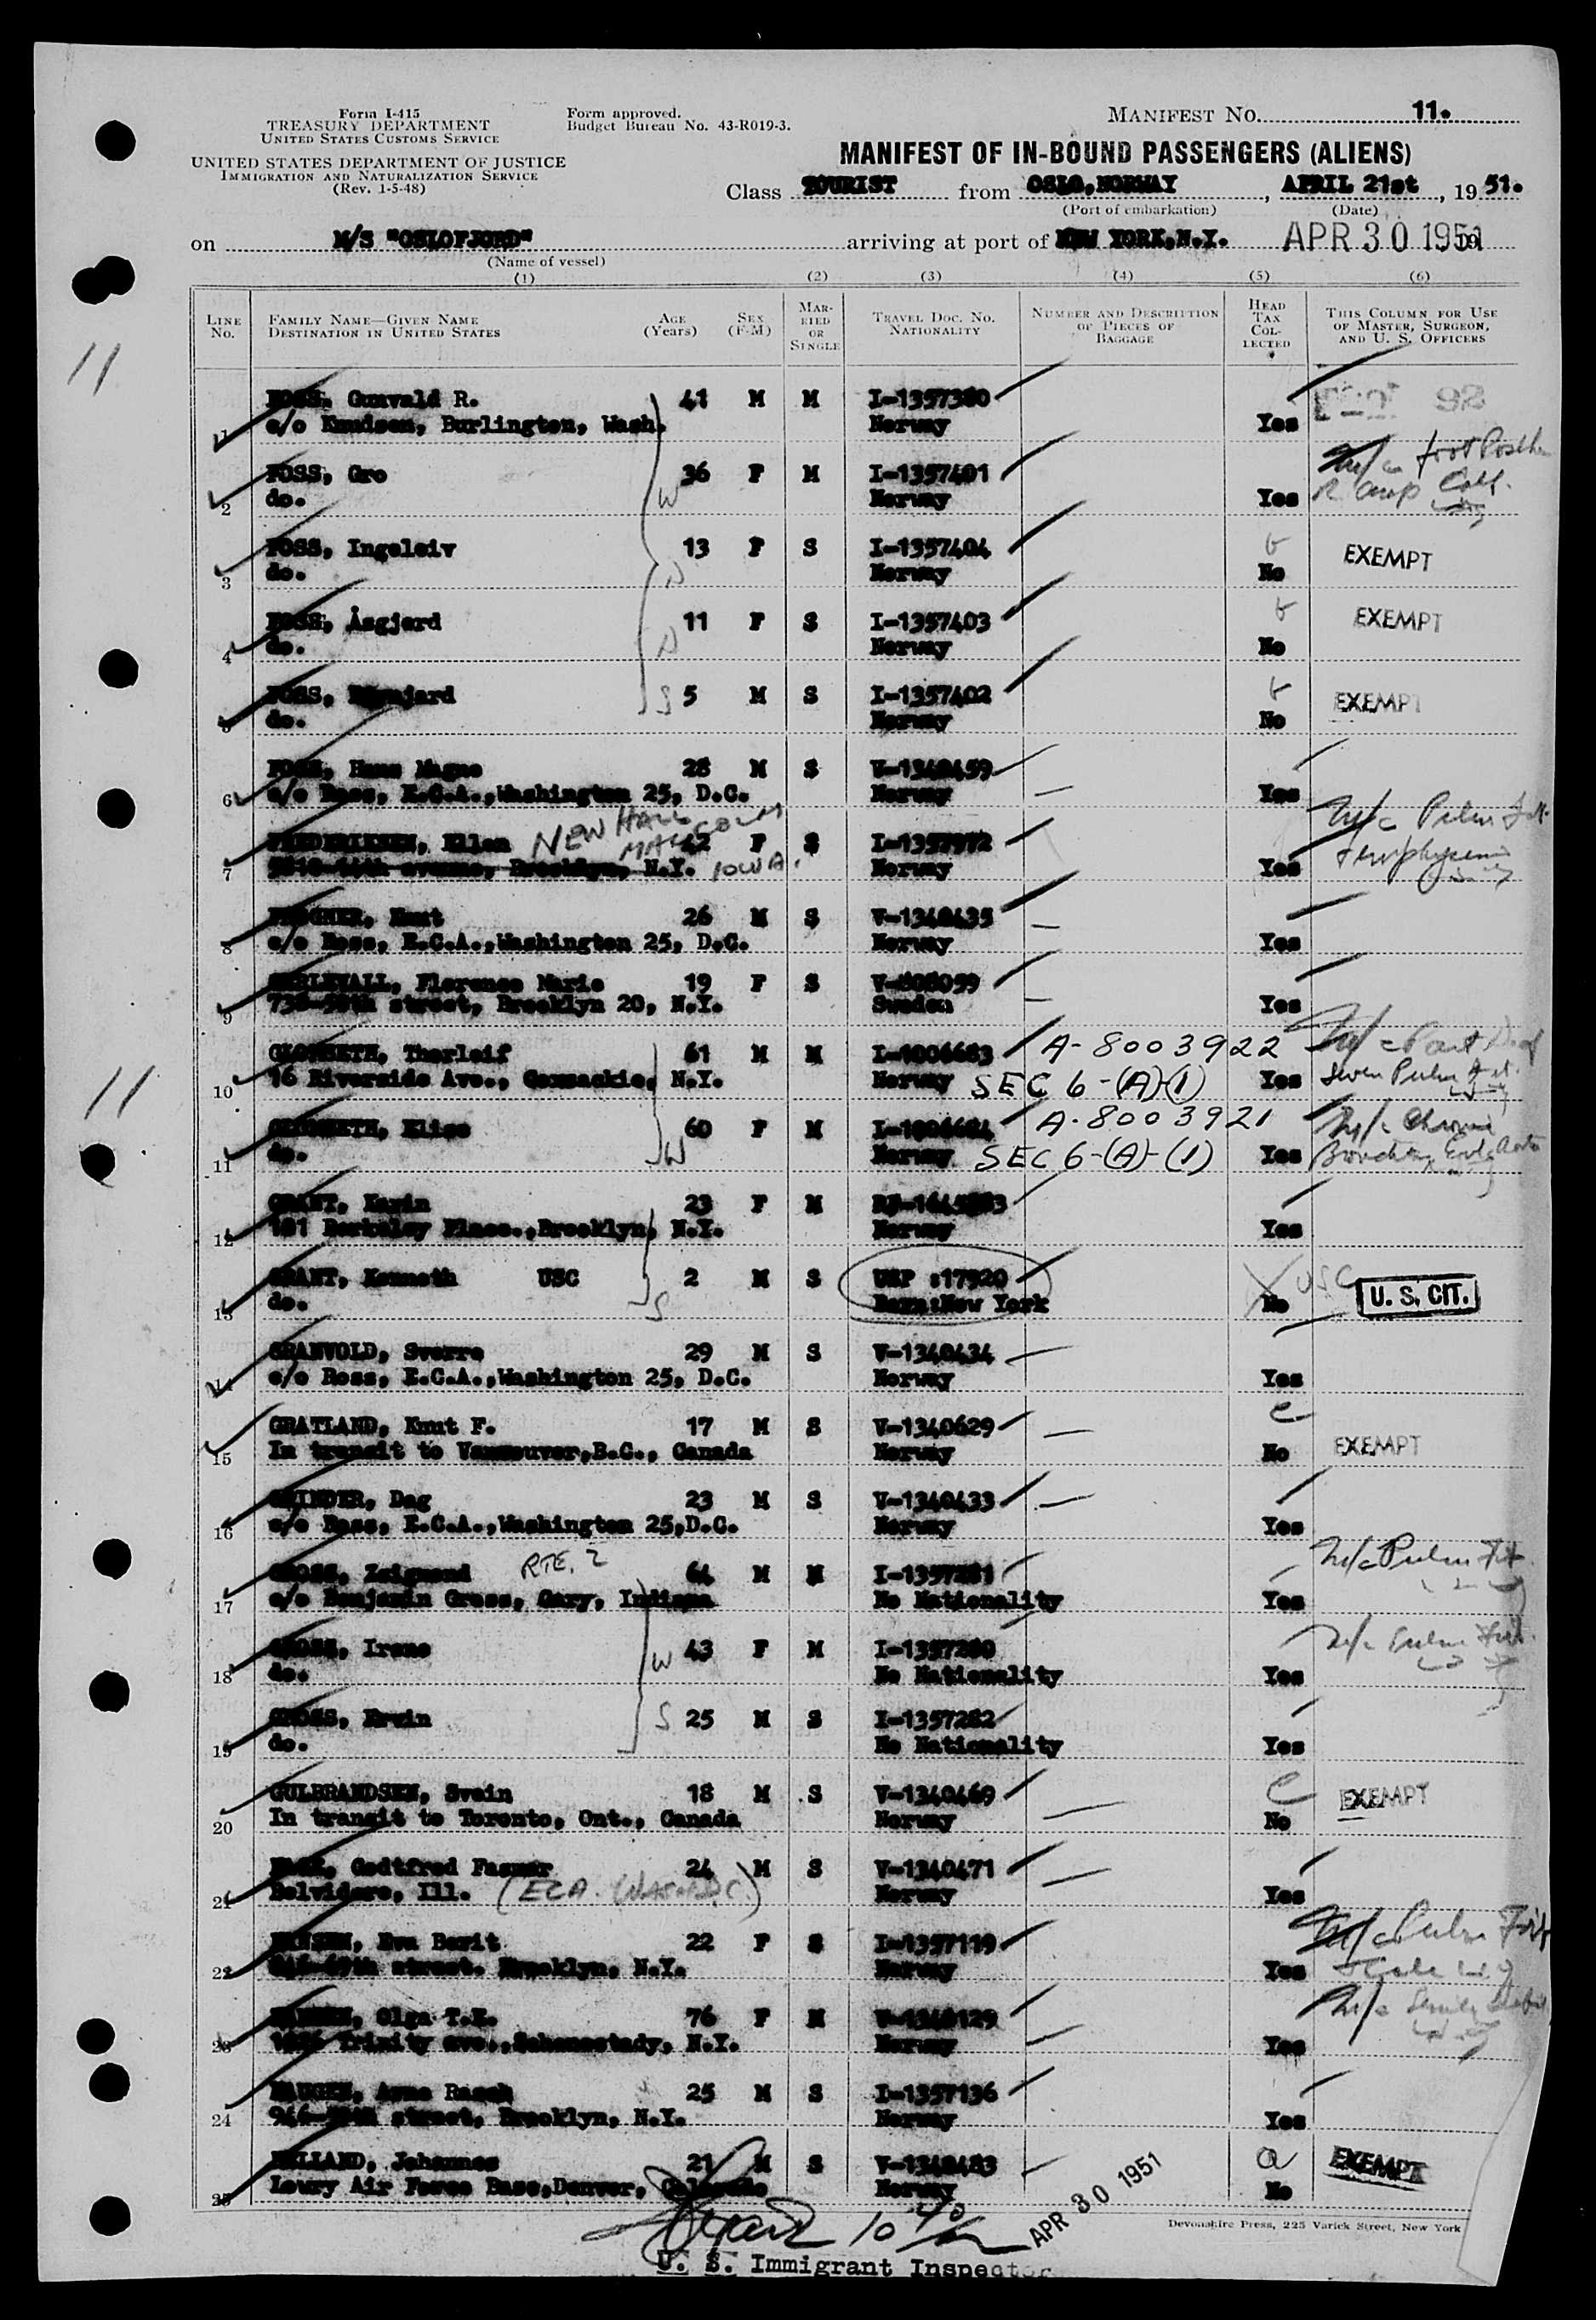 Form I-415
TREASURY DEPARTMENT
UNITED STATES CUSTOMS SERVICE
UNITED STATES DEPARTMENT OF JUSTICE
IMMIGRATION AND NATURALIZATION SERVICE
(Rev. 1-5-48)
Form approved.
Budget Bureau No. 43-R019-3.
MANIFEST No. 11.
MANIFEST OF IN-BOUND PASSENGERS (ALIENS)
Class TOURIST from OSLO,NORWAY, APRIL 21st, 19 51.
(Port of embarkation) (Date)
on M/S "OSLOFJORD" arriving at port of NEW YORK,N.Y. APR 30 1951
(Name of vessel)
(1) (2) (3) (4) (5) (6)
LINE No.
FAMILY NAME—GIVEN NAME
DESTINATION IN UNITED STATES
AGE (Years)
SEX (F-M)
MARRIED OR SINGLE
TRAVEL DOC. No.
NATIONALITY
NUMBER AND DESCRIPTION OF PIECES OF BAGGAGE
HEAD TAX COLLECTED
THIS COLUMN FOR USE OF MASTER, SURGEON, AND U. S. OFFICERS
11
FOSS, Gunvald R. 41 M M I-1357380
1 c/o Knudsen, Burlington, Wash. Norway Yes
FOSS, Gro 36 F M I-1357401
2 do. W Norway Yes
FOSS, Ingeleiv 13 F S I-1357404 EXEMPT
3 do. D Norway No
FOSS, Åsgjerd 11 F S I-1357403 EXEMPT
4 do. D Norway No
FOSS, 5 M S I-1357402 EXEMPT
5 do. S Norway No
FOSS, Hans Magne 28 M S V-1340459
6 c/o Ross, E.C.A.,Washington 25, D.C. Norway Yes
FREDERIKSEN, Ellen NEW HALL 42 F S I-1357972
7 avenue, Brooklyn, N.Y. IOWA. Norway Yes
Knut 26 M S V-1340435
8 c/o Ross, E.C.A.,Washington 25, D.C. Norway Yes
Florence Marie 19 F S V-808059
9 street, Brooklyn 20, N.Y. Sweden Yes
Thorleif 61 M M I-1006683 A-8003922
10 16 Riverside Ave., Coxsackie, N.Y. Norway SEC 6-(A)-(1) Yes
Elise 60 F M A-8003921
11 do. W Norway SEC 6-(A)-(1) Yes
11
GRANT, Karin 23 F M
12 181 Berkeley Place.,Brooklyn, N.Y. Norway Yes
GRANT, Kenneth USC 2 M S USP :17920 USC U. S. CIT.
13 do. S Born:New York No
GRANVOLD, Sverre 29 M S V-1340434
14 c/o Ross, E.C.A.,Washington 25, D.C. Norway Yes
GRATLAND, Knut F. 17 M S V-1340629
15 In transit to Vancouver,B.C., Canada Norway No EXEMPT
GRINDER, Dag 23 M S V-1340433
16 c/o Ross, E.C.A.,Washington 25,D.C. Norway Yes
GROSS, Zsigmond RTE. 2 64 M M I-1357281
17 c/o Benjamin Gross, Gary, Indiana No Nationality Yes
GROSS, Irene W 43 F M I-1357280
18 do. No Nationality Yes
GROSS, Ervin S 25 M S I-1357282
19 do. No Nationality Yes
GULBRANDSEN, Svein 18 M S V-1340469 EXEMPT
20 In transit to Toronto, Ont., Canada Norway No
Godtfred Fasmer 24 M S V-1340471
21 Belvidere, Ill. (ECA. WASH.D.C.) Norway Yes
HANSEN, Eva Berit 22 F S I-1357119
22 street. Brooklyn, N.Y. Norway Yes
HANSEN, Olga T.E. 76 F M V-1340129
23 Trinity ave.,Schenectady, N.Y. Norway Yes
HAUGEN, Arne Rasch 25 M S I-1357136
24 street, Brooklyn, N.Y. Norway Yes
HELLAND, Johannes 21 M S V-1340483 EXEMPT
25 Lowry Air Force Base,Denver, Colorado Norway No
APR 30 1951
Devonshire Press, 225 Varick Street, New York
U. S. Immigrant Inspector